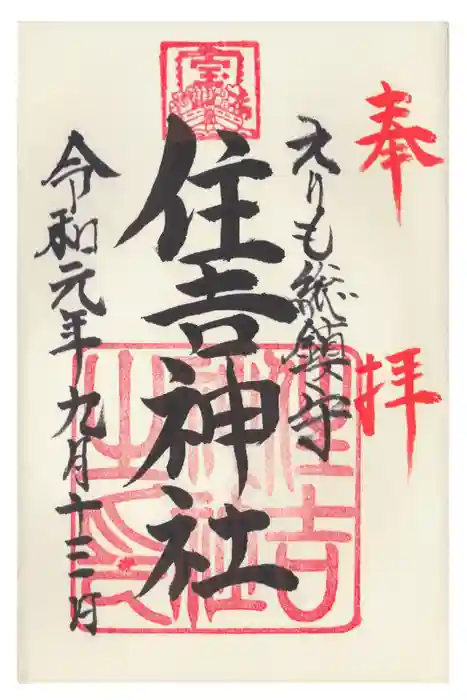 奉拝
えりも総鎮守
宝
住吉神社
住吉神社之印
令和元年九月十三日